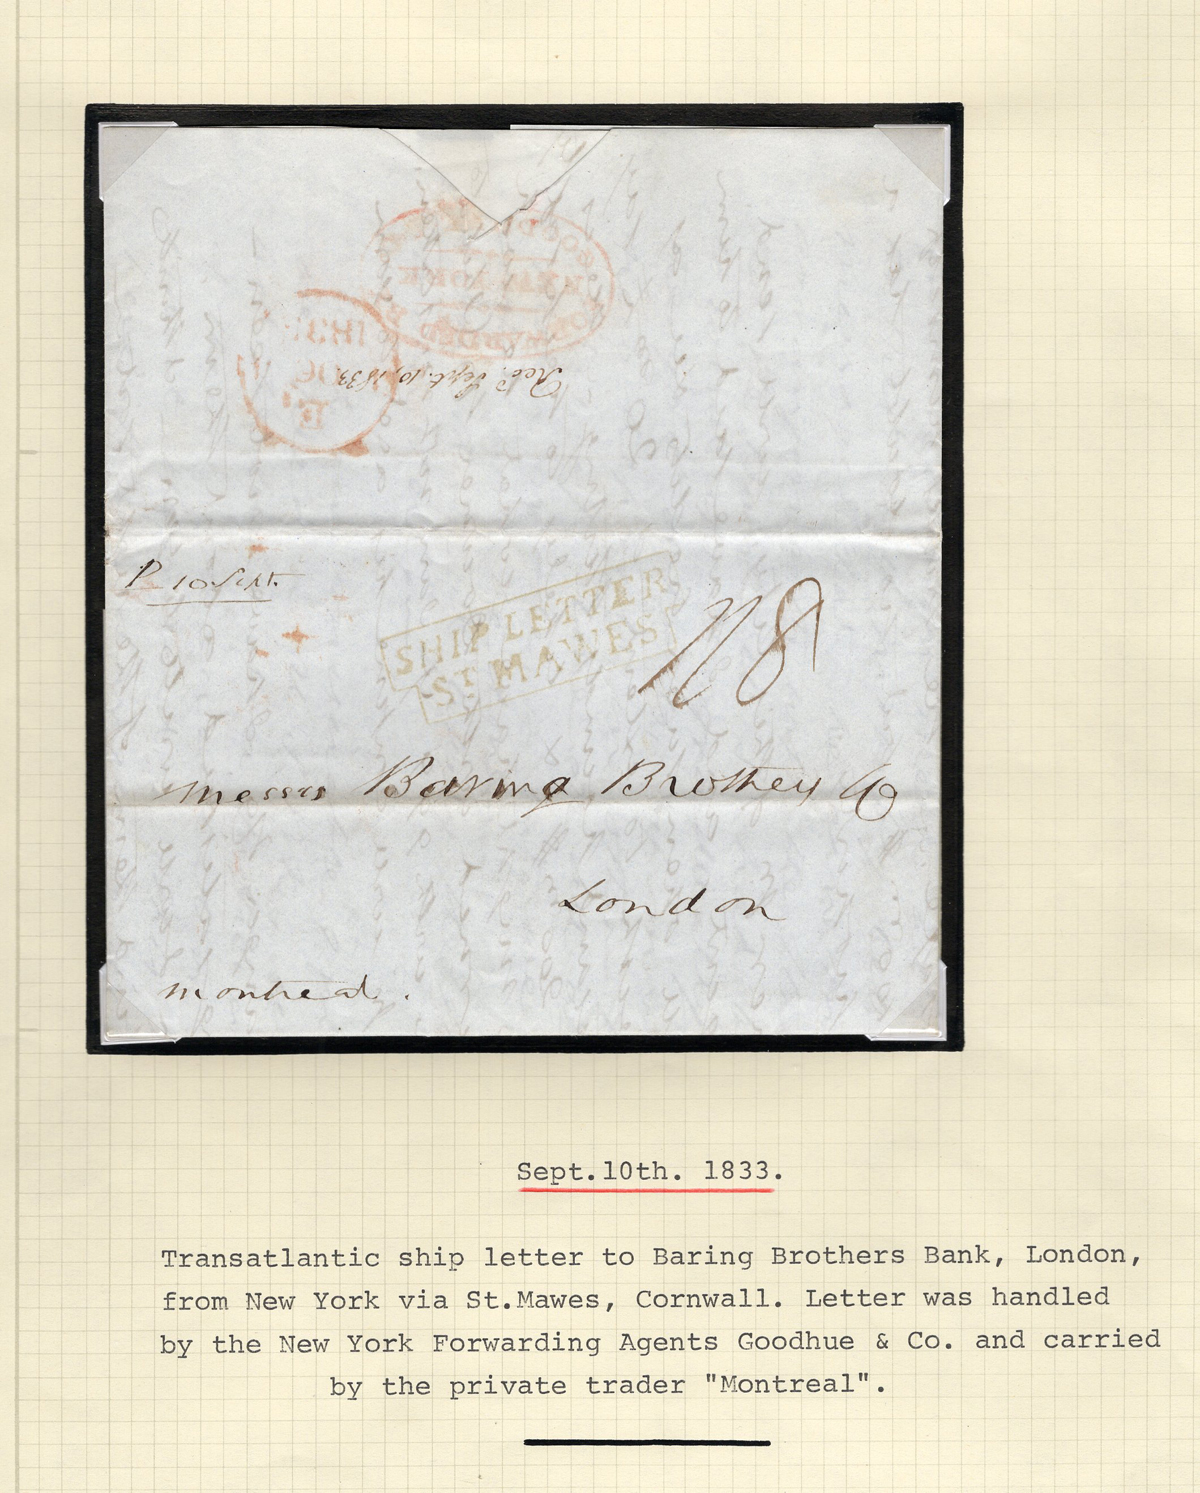 FORWARDED
NEW YORK
Recd. Sept. 10, 1833
P 10 Sept.
SHIP LETTER
ST MAWES
1/8
Messrs Baring Brothers & Co
London
Montreal.
Sept.10th. 1833.
Transatlantic ship letter to Baring Brothers Bank, London,
from New York via St.Mawes, Cornwall. Letter was handled
by the New York Forwarding Agents Goodhue & Co. and carried
by the private trader "Montreal".